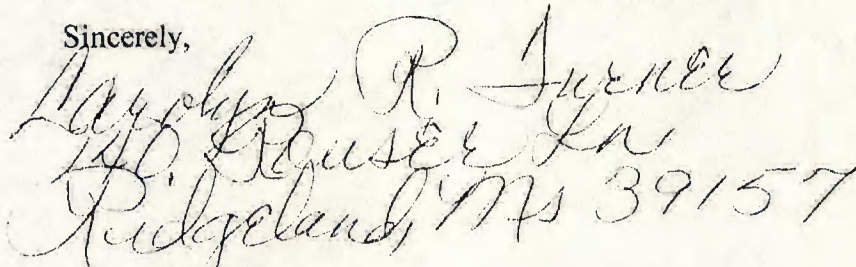 Sincerely,
Carolyn R. Turner
140 Rouser Ln
Ridgeland, Ms 39157